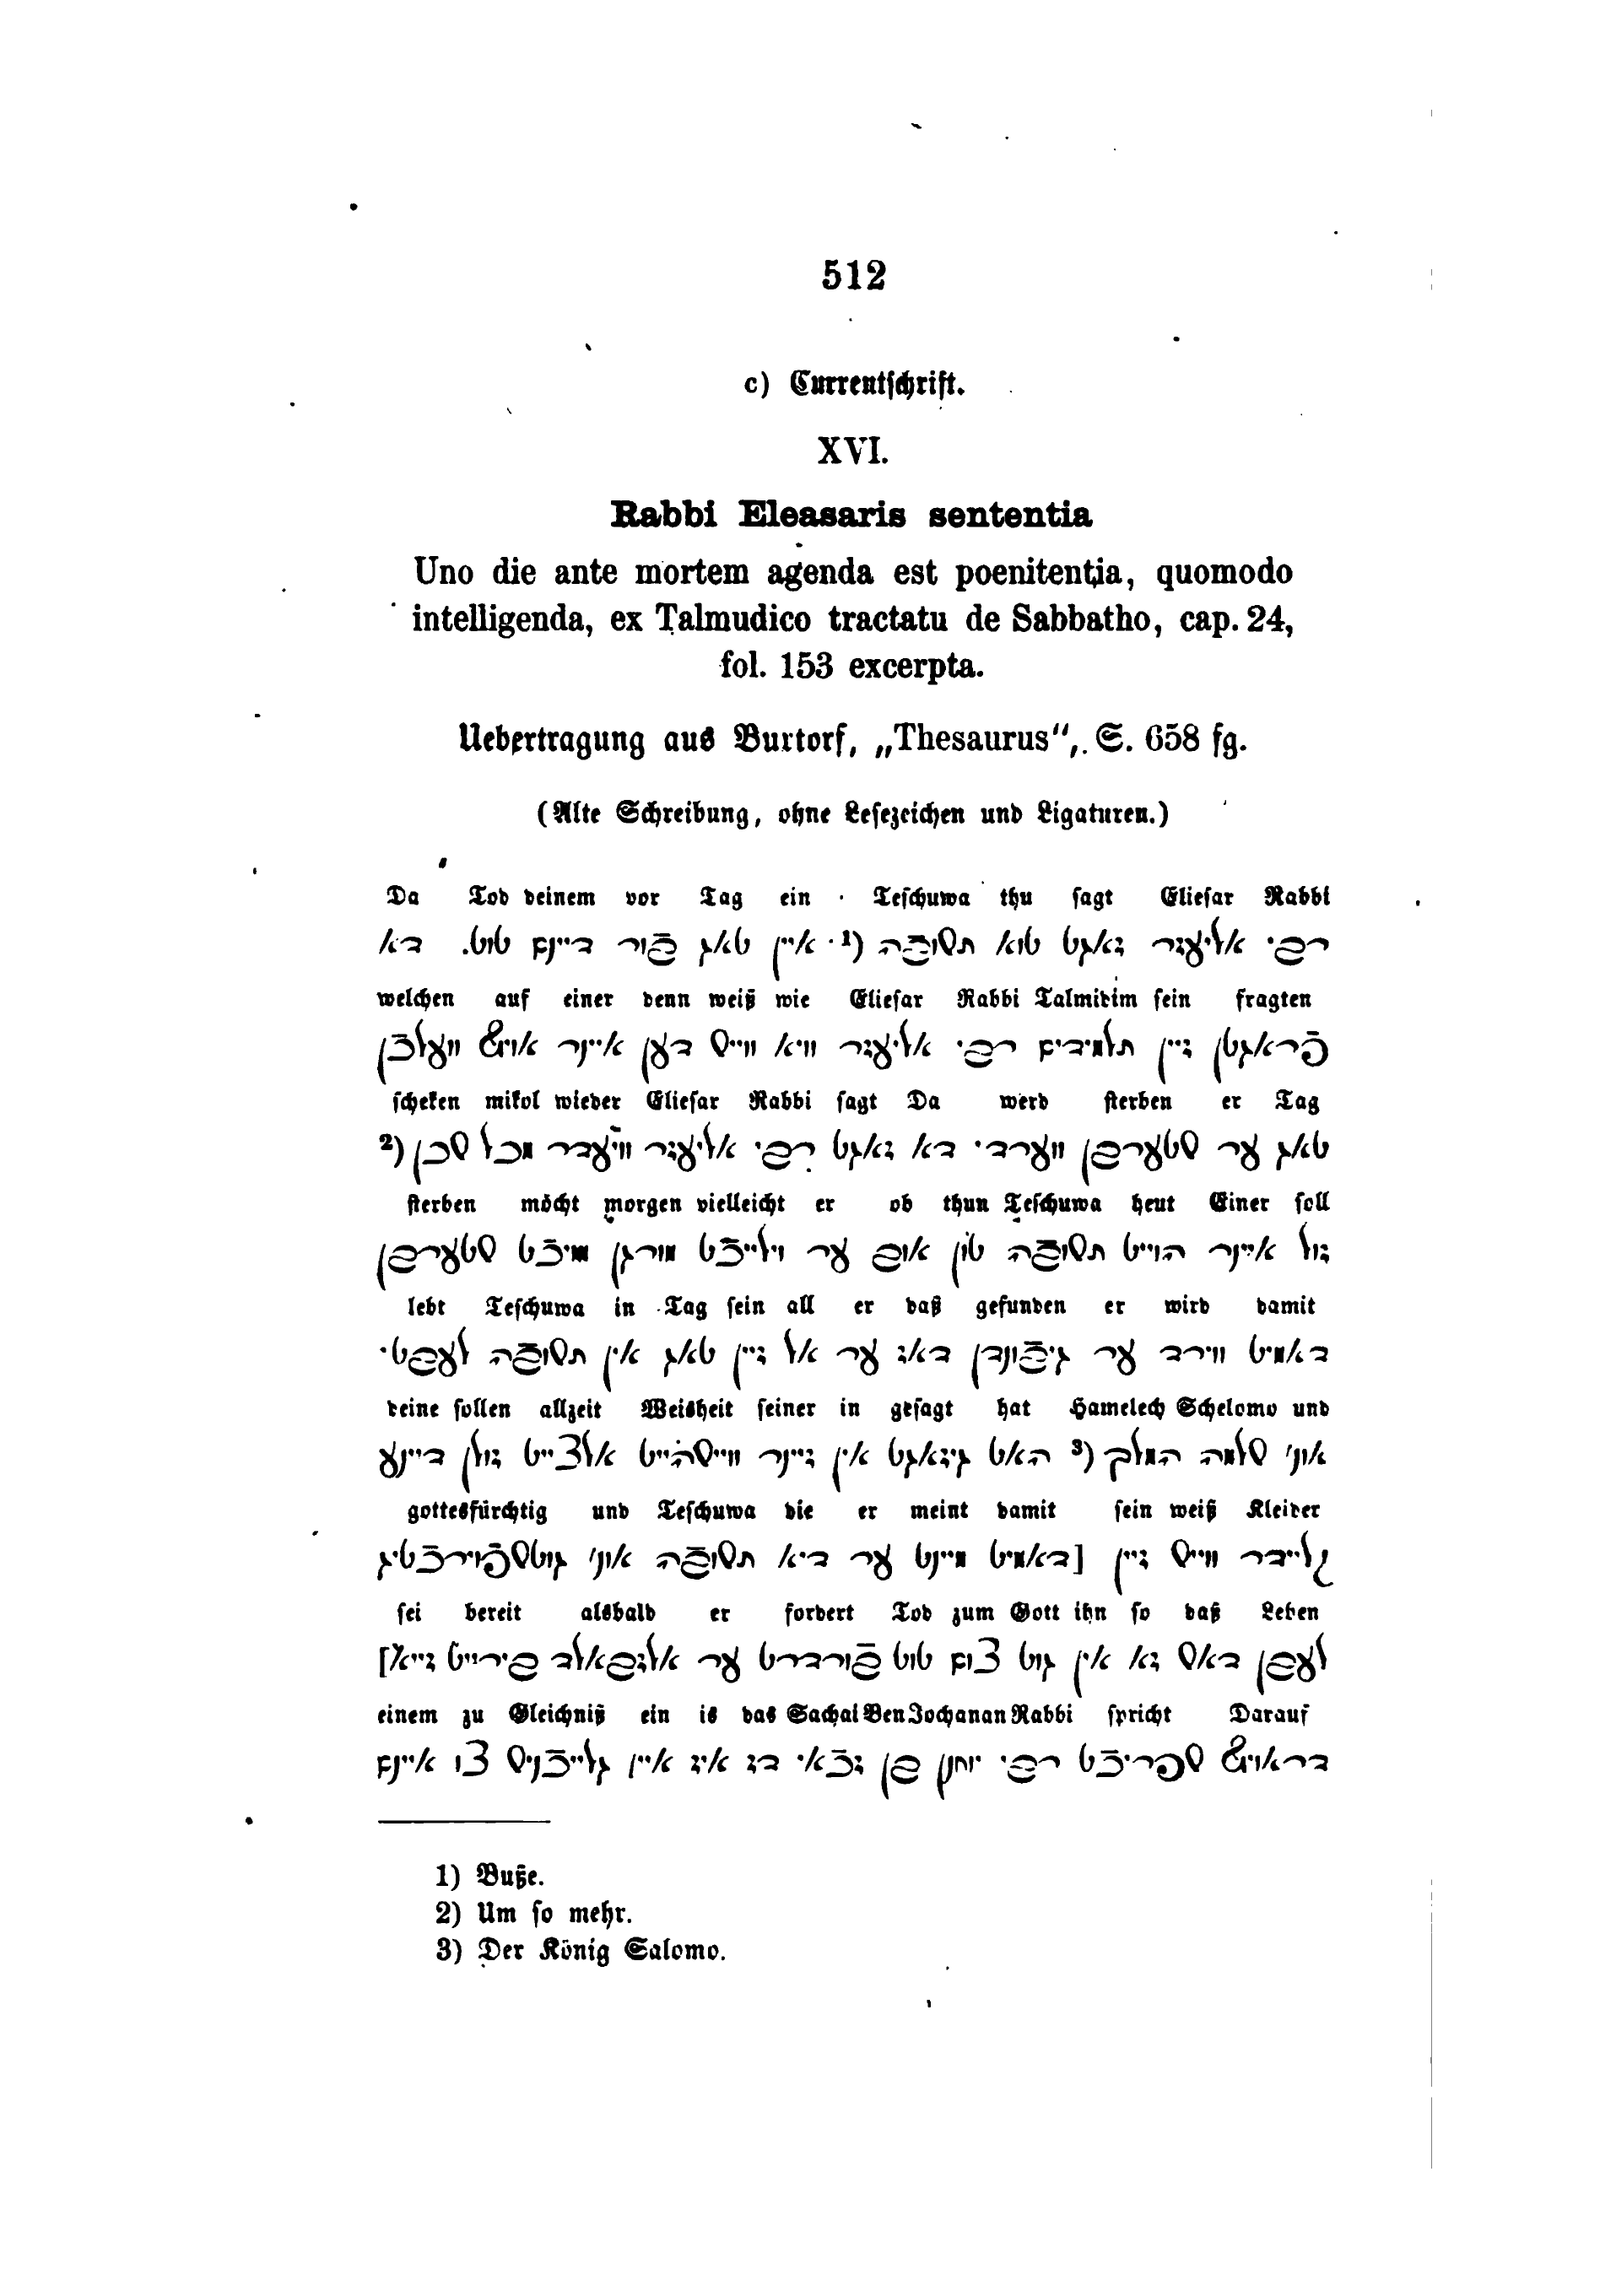 512
c) Currentſchrift.
XVI.
Rabbi Eleasaris sententia
Uno die ante mortem agenda est poenitentia, quomodo
intelligenda, ex Talmudico tractatu de Sabbatho, cap. 24,
fol. 153 excerpta.
Uebertragung aus Buxtorf, „Thesaurus“, S. 658 fg.
(Alte Schreibung, ohne Leſezeichen und Ligaturen.)
Da Tod deinem vor Tag ein Teſchuwa thu ſagt Elieſar Rabbi
רבי אליעזר זאגט טוא תשובה (¹ איין טאג פור דיינם טוט. דא
welchen auf einer denn weiß wie Elieſar Rabbi Talmidim ſein fragten
פראגטן זיין תלמידים רבי אליעזר וויא ווייס דען איינר אויף וועלכן
ſcheken mikol wieder Elieſar Rabbi ſagt Da werd ſterben er Tag
טאג ער שטערבן ווערד דא זאגט רבי אליעזר ווידער מכל שכן (²
ſterben möcht morgen vielleicht er ob thun Teſchuwa heut Einer ſoll
זול איינר הוייט תשובה טון אוב ער וילייכט מורגן מיכט שטערבן
lebt Teſchuwa in Tag ſein all er daß gefunden er wird damit
דאמיט ווירד ער גיפונדן דאז ער אל זיין טאג אין תשובה לעבט
deine ſollen allzeit Weisheit ſeiner in geſagt hat Hamelech Schelomo und
אונ׳ שלמה המלך (³ האט גיזאגט אין זיינר ווייסהייט אלצייט זולן דיינע
gottesfürchtig und Teſchuwa die er meint damit ſein weiß Kleider
קליידר ווייס זיין [דאמיט מיינט ער דיא תשובה אונ׳ גוטספורכטיג
ſei bereit alsbald er fordert Tod zum Gott ihn ſo daß Leben
לעבן דאס זא אין גוט צום טוט פורדרט ער אלזבאלד בירייט זייא]
einem zu Gleichniß ein is das Sachai Ben Jochanan Rabbi ſpricht Darauf
דראויף שפריכט רבי יוחנן בן זכאי דז איז איין גלייכניס צו איינם
1) Buße.
2) Um ſo mehr.
3) Der König Salomo.